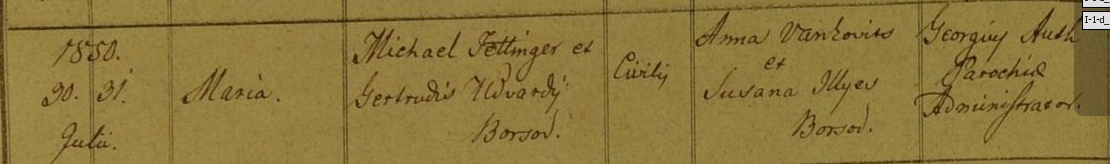 1850.
30. 31.
Julii.
Maria.
Michael Fettinger et
Gertrudis Udvardÿ
Borsod.
Civilis
Anna Vankovits
et
Susana Illyes
Borsod.
Georgius Auth
Parochiæ
Administrator.
I-1-d_